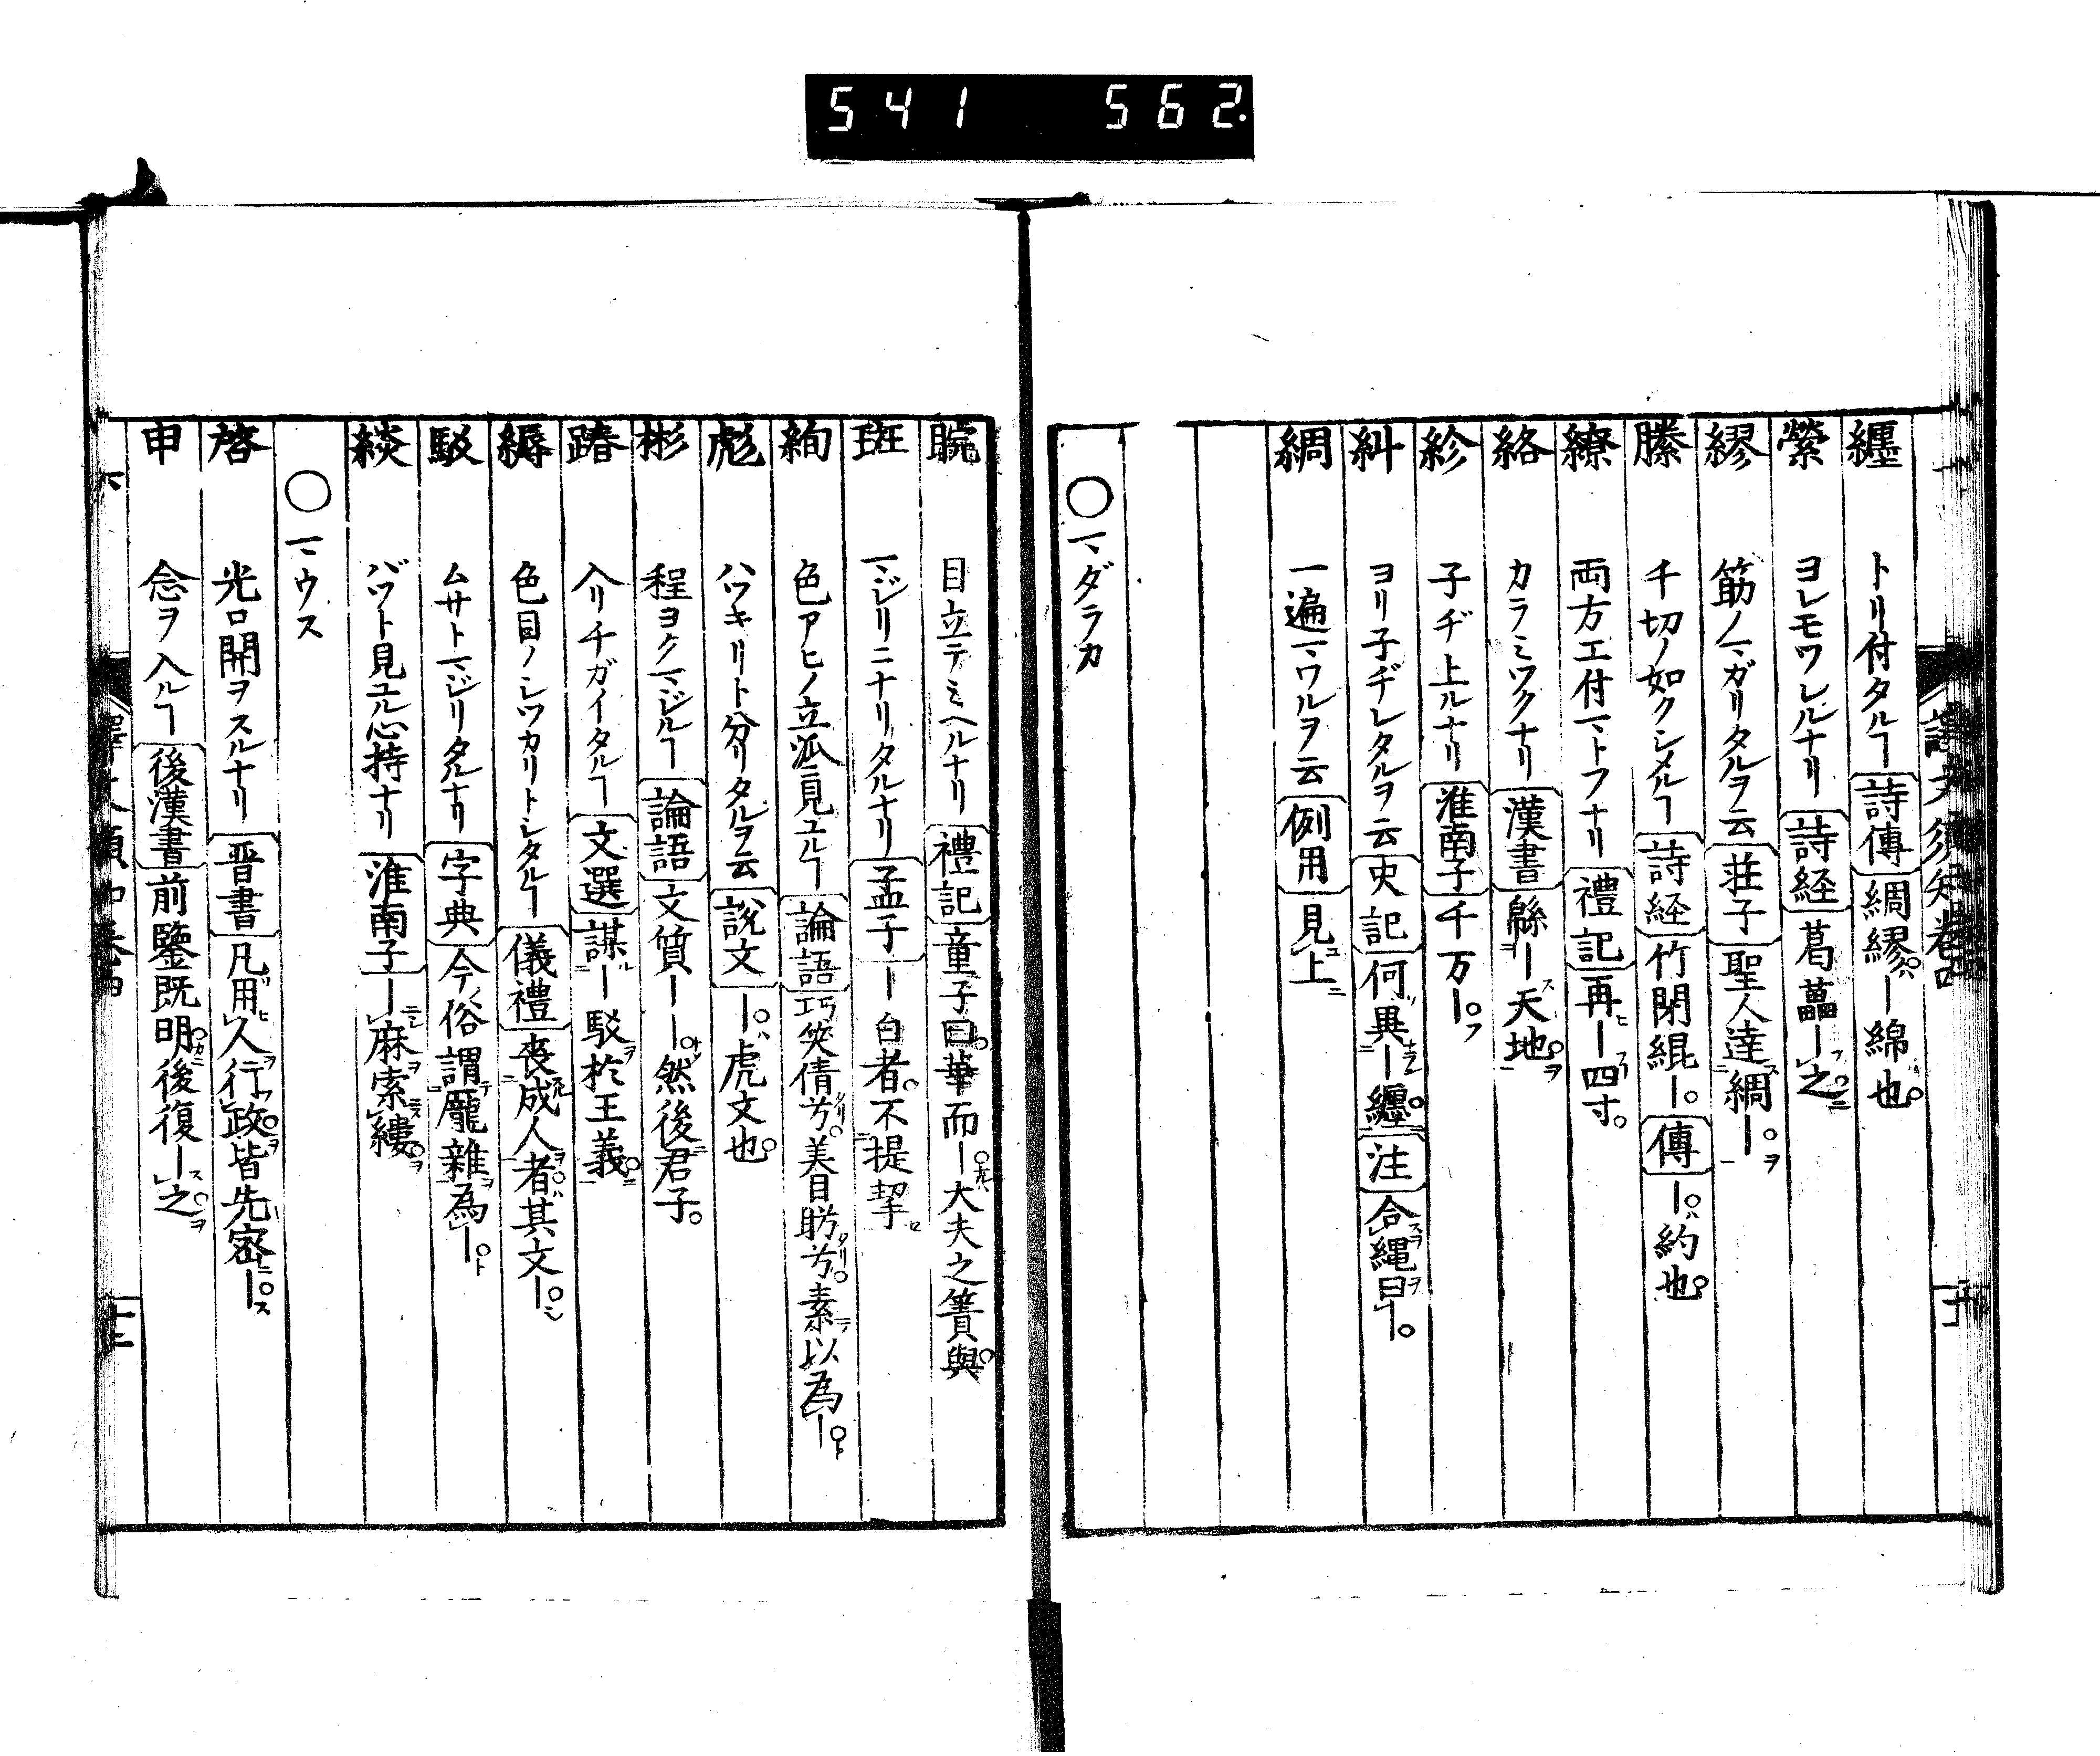 541 562.
譯文須知巻四
纏 トリ付タルヿ 詩傳 綢繆ハー綿也
縈 ヨレモワレルナリ 詩経 葛藟ー之
繆 筋ノマガリタルヲ云 荘子 聖人達綢ー
縢 千切ノ如クシメルヿ 詩経 竹閉緄ー 傳 ーハ約也
繚 両方エ付マトフナリ 禮記 再ー四寸
絡 カラミツクナリ 漢書 緜ー天地
紾 子ヂ上ルナリ 淮南子 千万ー
糾 ヨリ子ヂレタルヲ云 史記 何異ー纏 注 合縄曰ー
綢 一遍マワルヲ云 例用 見上
〇マダラカ
睆 目立テミヘルナリ 禮記 童子曰華而ー大夫之簀與
斑 マジリニナリタルナリ 孟子 ー白者不提挈
絢 色アヒノ立派見ユルヿ 論語 巧笑倩兮美目盼兮素以為ー
彪 ハツキリト分リタルヲ云 説文 ーハ虎文也
彬 程ヨクマジルヿ 論語 文質ーー然後君子
踳 入リチガイタルヿ 文選 謀ー駁於王義
縟 色目ノシツカリトシタルヿ 儀禮 喪成人者其文ー
駁 ムサトマジリタルナリ 字典 今俗謂厖雜為ー
緂 バツト見ユル心持ナリ 淮南子 ー麻索縷
〇マウス
啓 光ロ開ヲスルナリ 晋書 凡用人行政皆先密ー
申 念ヲ入ルヿ 後漢書 前鑒既明後復ー之
十二